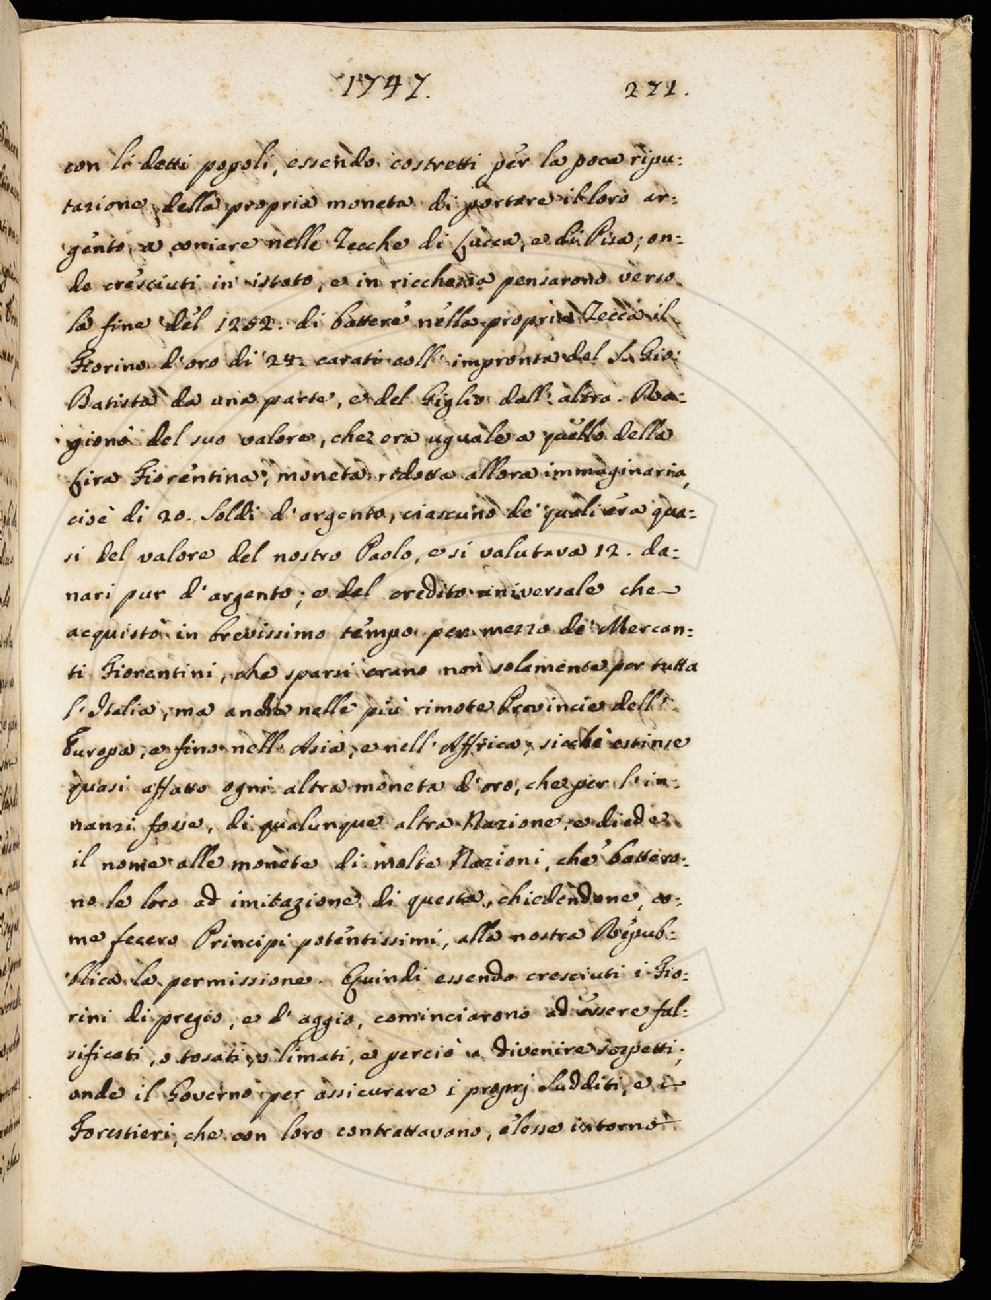 1747. 271.
con li detti popoli, essendo costretti per la poca ripu:
tazione della propria moneta di portare il loro ar:
gento a coniare nelle Zecche di Lucca, e di Pisa; on:
de cresciuti in istato, e in ricchezza pensarono verso
la fine del 1252. di battere nella propria Zecca il
Fiorino d'oro di 24. carati coll'impronta del S. Gio:
Batista da una parte, e del Giglio dall'altra. Ra:
gione del suo valore, che era uguale a quello della
Lira Fiorentina, moneta ridotta allora immaginaria,
cioè di 20. Soldi d'argento, ciascuno de' quali era qua:
si del valore del nostro Paolo, e si valutava 12. da:
nari pur d'argento; e del credito universale che
acquistò in brevissimo tempo per mezzo de' Mercan:
ti Fiorentini, che sparsi erano non solamente per tutta
l'Italia, ma anche nelle più rimote Provincie dell'
Europa, e fino nell'Asia, e nell'Affrica, sicchè estinse
quasi affatto ogni altra moneta d'oro, che per l'in:
nanzi fosse, di qualunque altra Nazione, e diede
il nome alle monete di molte Nazioni, che battero:
no le loro ad imitazione di questa, chiedendone, co:
me fecero Principi potentissimi, alla nostra Repub:
blica la permissione. Quindi essendo cresciuti i Fio:
rini di pregio, e d'aggio, cominciarono ad essere fal:
sificati, o tosati, o limati, e perciò a divenire sospetti;
onde il Governo per assicurare i proprj Sudditi, e i
Forestieri, che con loro contrattavano, elesse intorno